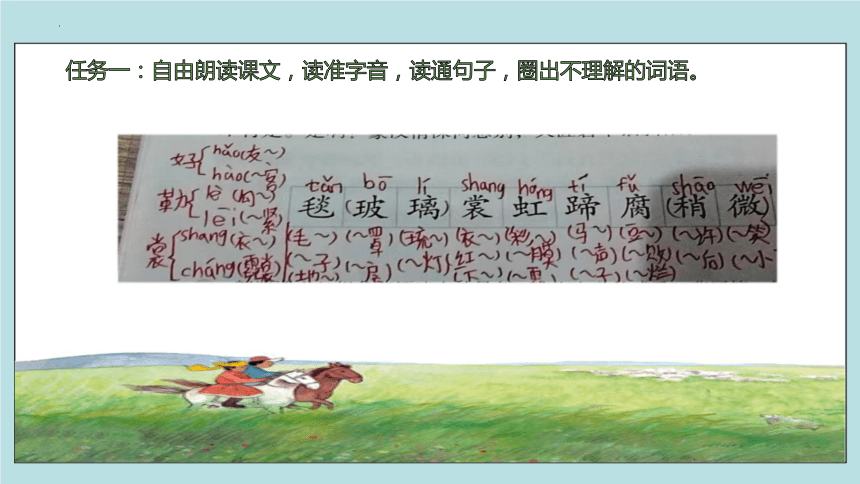 任务一：自由朗读课文，读准字音，读通句子，圈出不理解的词语。
好 hǎo(友～)
hào(～客)
勒 lè (勾～)
lēi(～紧)
裳 shang(衣～)
cháng(霓裳)
tǎn bō lí shang hóng tí fǔ shāo wēi
毯 (玻 璃) 裳 虹 蹄 腐 (稍 微)
(毛～) (～罩) (琉～) (衣～) (彩～) (马～) (豆～) (～许) (～笑)
(～子) (～房) (～灯) 红～ (～膜) (～声) (～败) (～后) (～小
(地～)
(～子) (～烂)